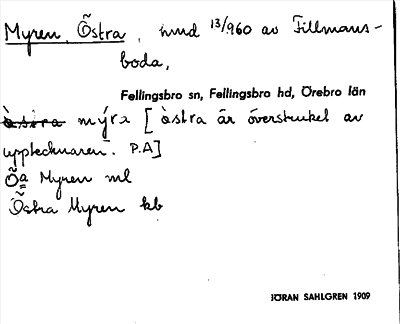 Myren, Östra, hmd 13/960 av Fillmans-
boda,
Fellingsbro sn, Fellingsbro hd, Örebro län
òstra mýra [òstra är överstruket av
upptecknaren. P.A]
Öa Myren ml
Östra Myren kb
JÖRAN SAHLGREN 1909